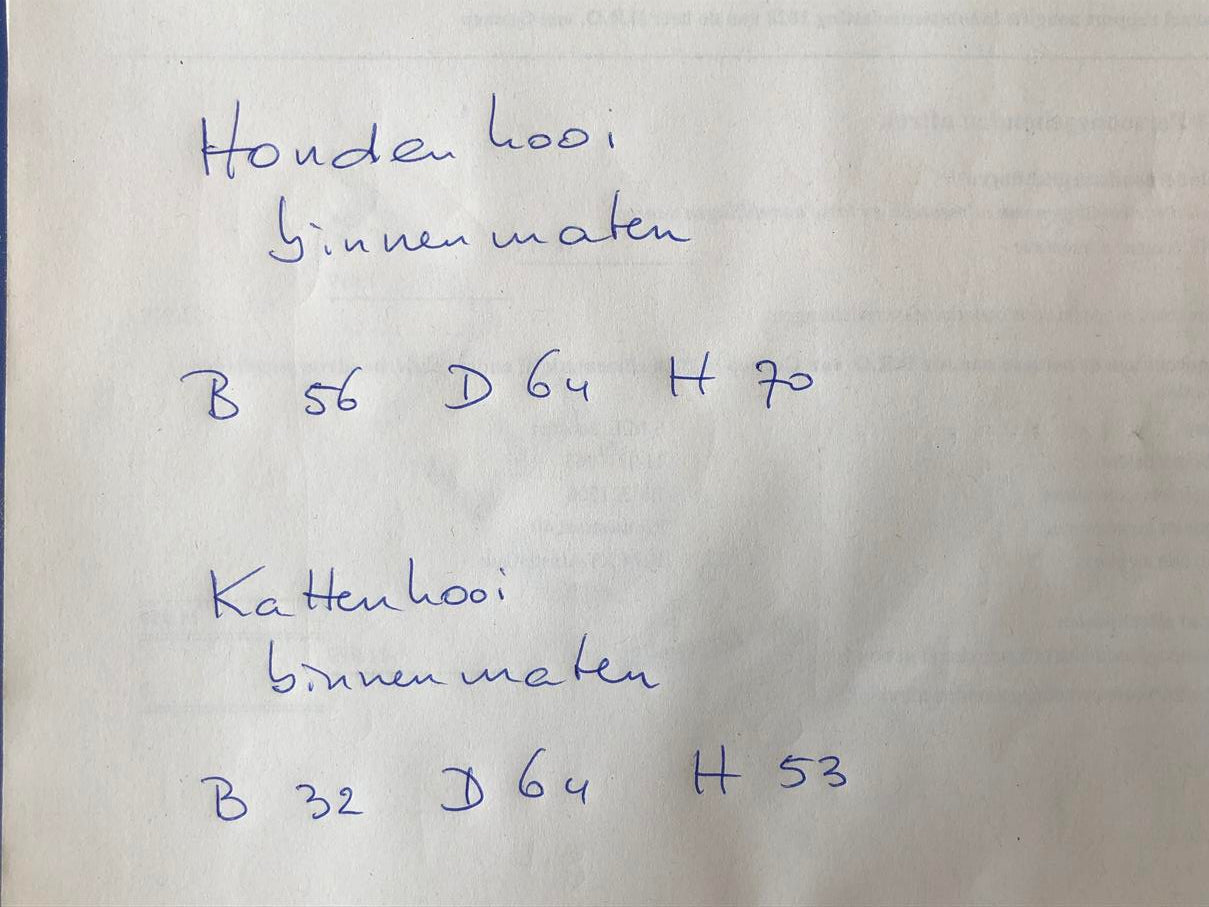 Honden kooi
binnenmaten
B 56 D 64 H 70
Kattenkooi
binnenmaten
B 32 D 64 H 53